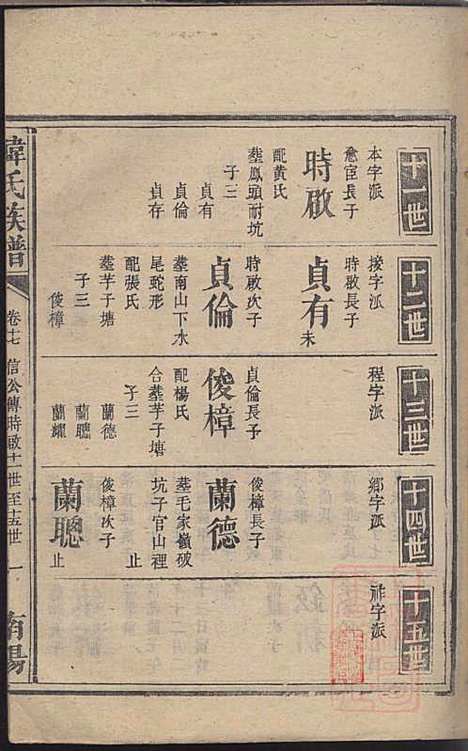 十一世
本字派
意宦長子
時啟
配黃氏
塟鳳頭耐坑
子三
貞有
貞倫
貞存
十二世
接字派
時啟長子
貞有
未
時啟次子
貞倫
塟南山下水
尾蛇形
配張氏
塟芋子塘
子三
俊樟
十三世
程字派
貞倫長子
俊樟
配楊氏
合塟芋子塘
子三
蘭德
蘭聰
蘭耀
十四世
鄉字派
俊樟長子
蘭德
塟毛家嶺破
坑子官山裡
止
俊樟次子
蘭聰
止
十五世
祚字派
韓氏族譜
卷十七
信公傳時啟十一世至十五世
一
南陽